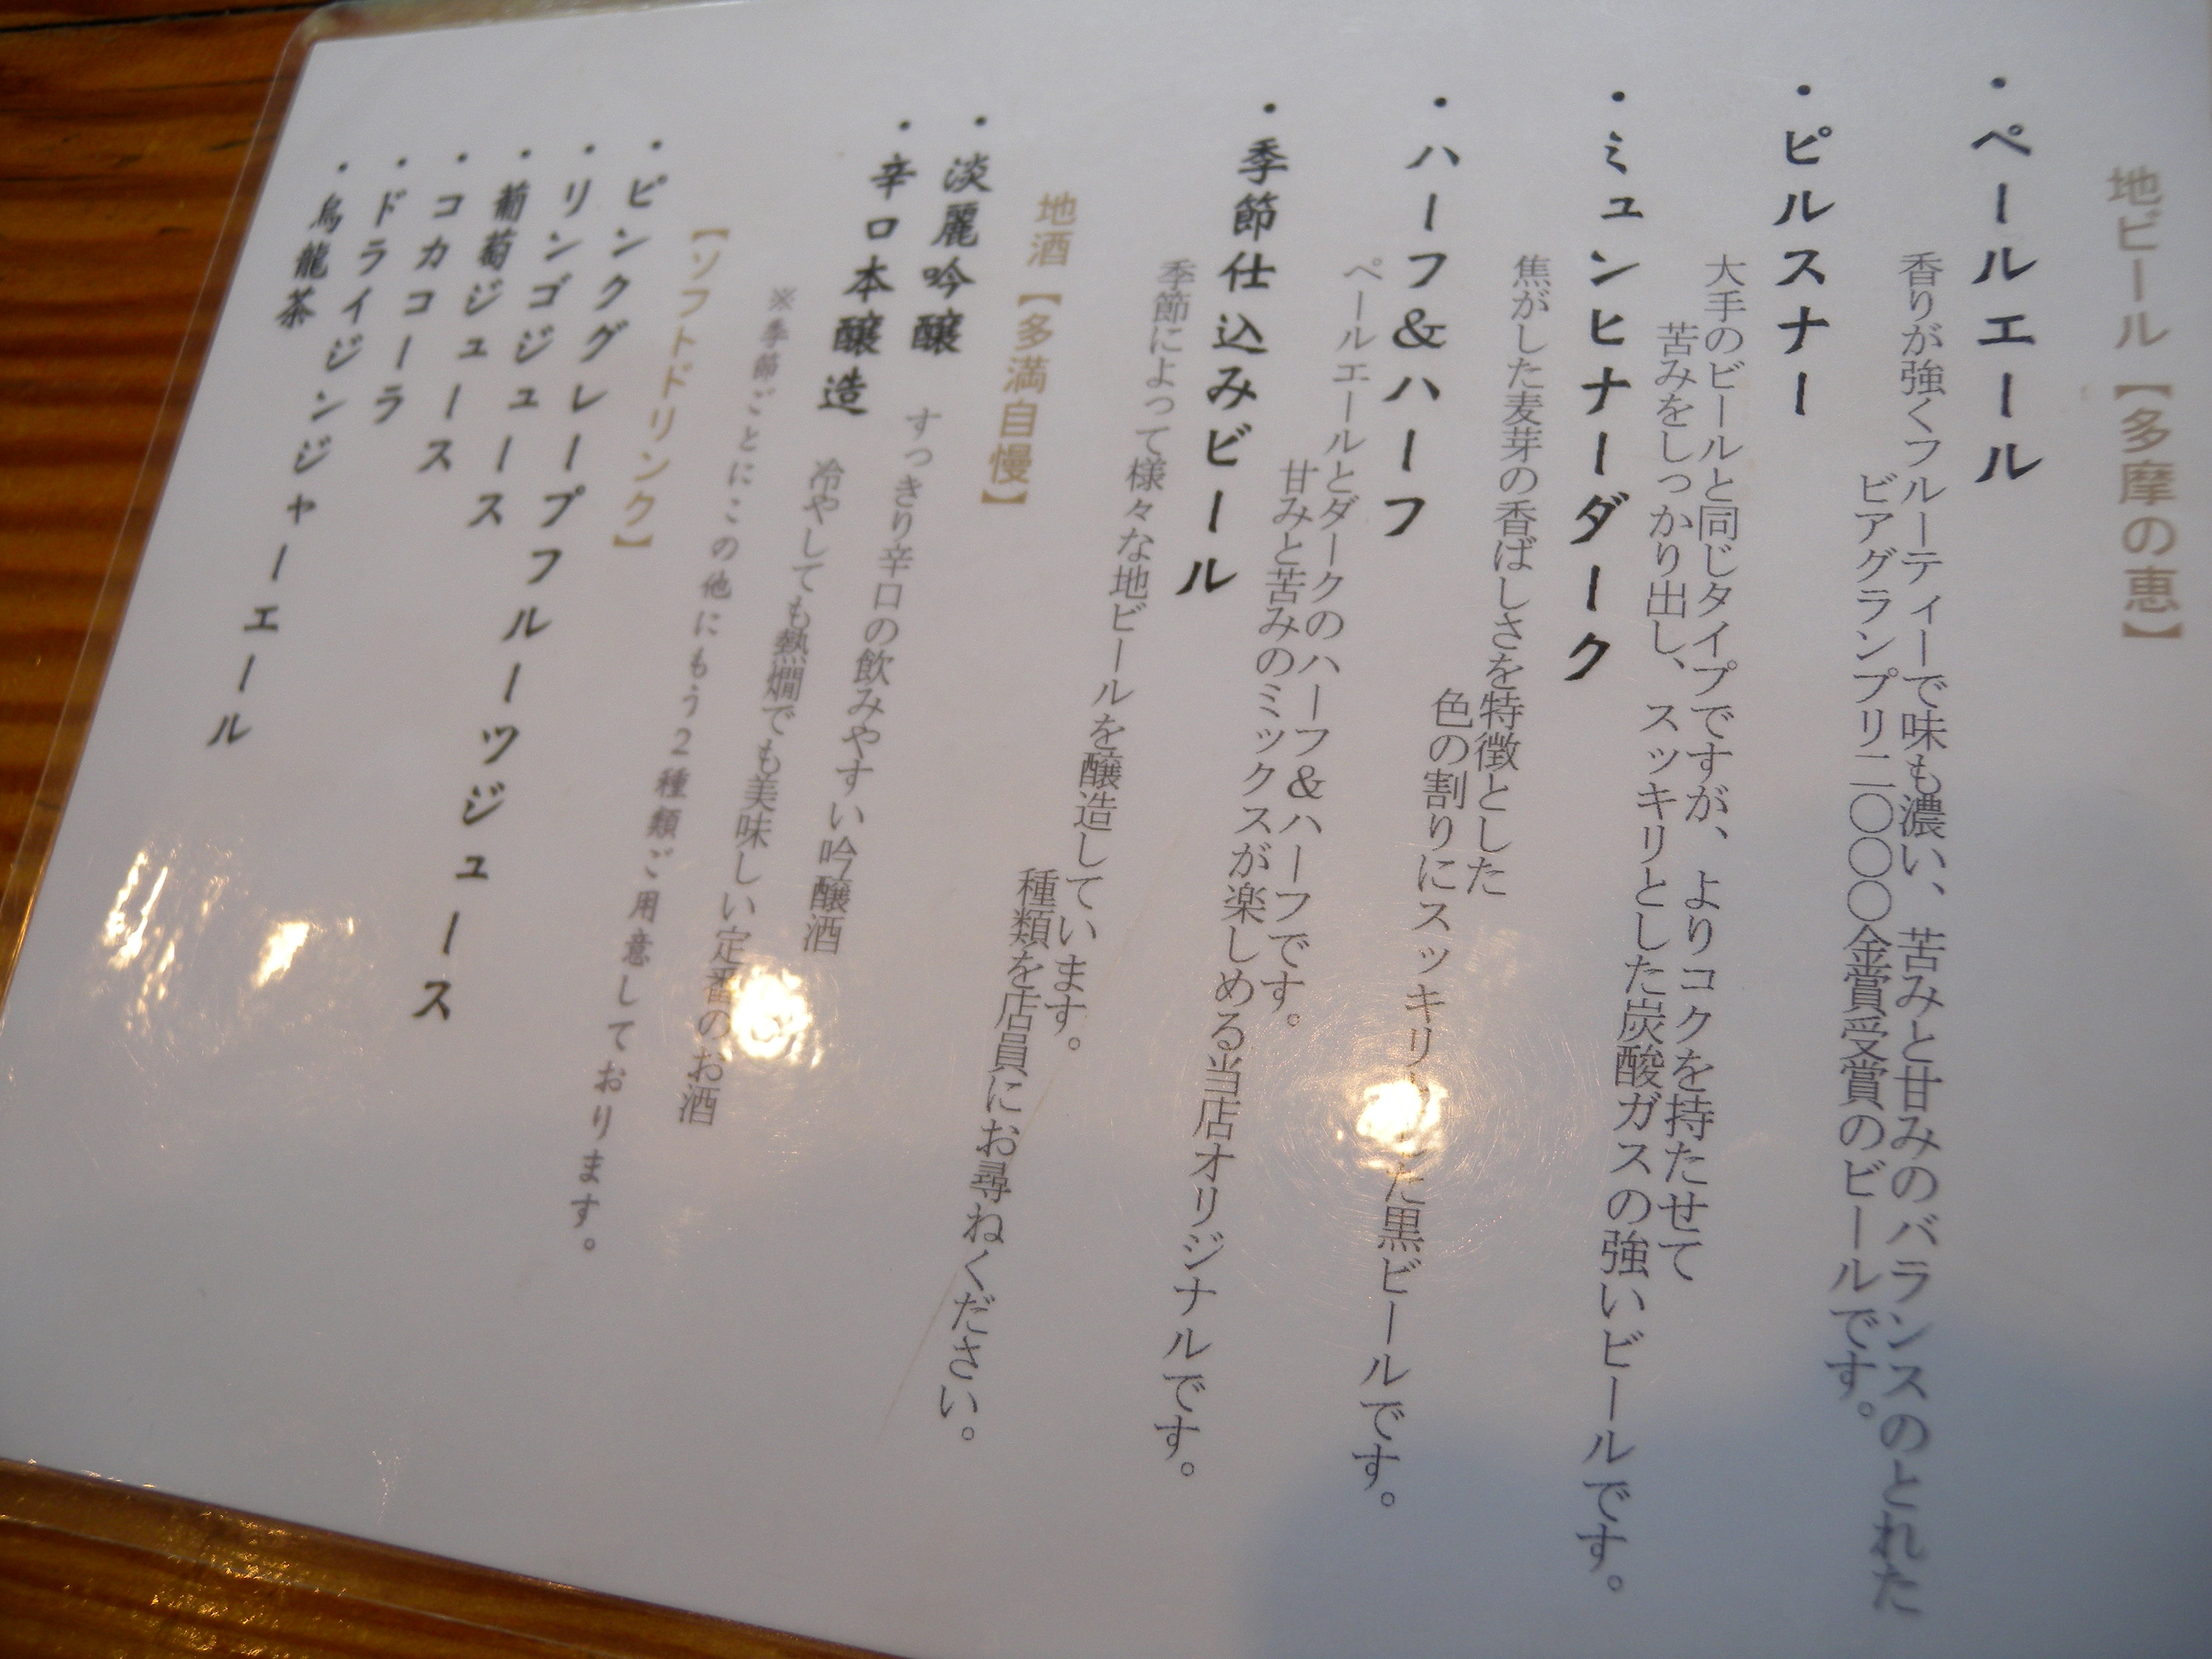 地ビール【多摩の恵】
・ペールエール
香りが強くフルーティーで味も濃い、苦みと甘みのバランスのとれた
ビアグランプリ二〇〇〇金賞受賞のビールです。
・ピルスナー
大手のビールと同じタイプですが、よりコクを持たせて
苦みをしっかり出し、スッキリとした炭酸ガスの強いビールです。
・ミュンヒナーダーク
焦がした麦芽の香ばしさを特徴とした
色の割りにスッキリした黒ビールです。
・ハーフ&ハーフ
ペールエールとダークのハーフ&ハーフです。
甘みと苦みのミックスが楽しめる当店オリジナルです。
・季節仕込みビール
季節によって様々な地ビールを醸造しています。
種類を店員にお尋ねください。
地酒【多満自慢】
・淡麗吟醸 すっきり辛口の飲みやすい吟醸酒
・辛口本醸造 冷やしても熱燗でも美味しい定番のお酒
※季節ごとにこの他にもう2種類ご用意しております。
【ソフトドリンク】
・ピンクグレープフルーツジュース
・リンゴジュース
・葡萄ジュース
・コカコーラ
・ドライジンジャーエール
・烏龍茶